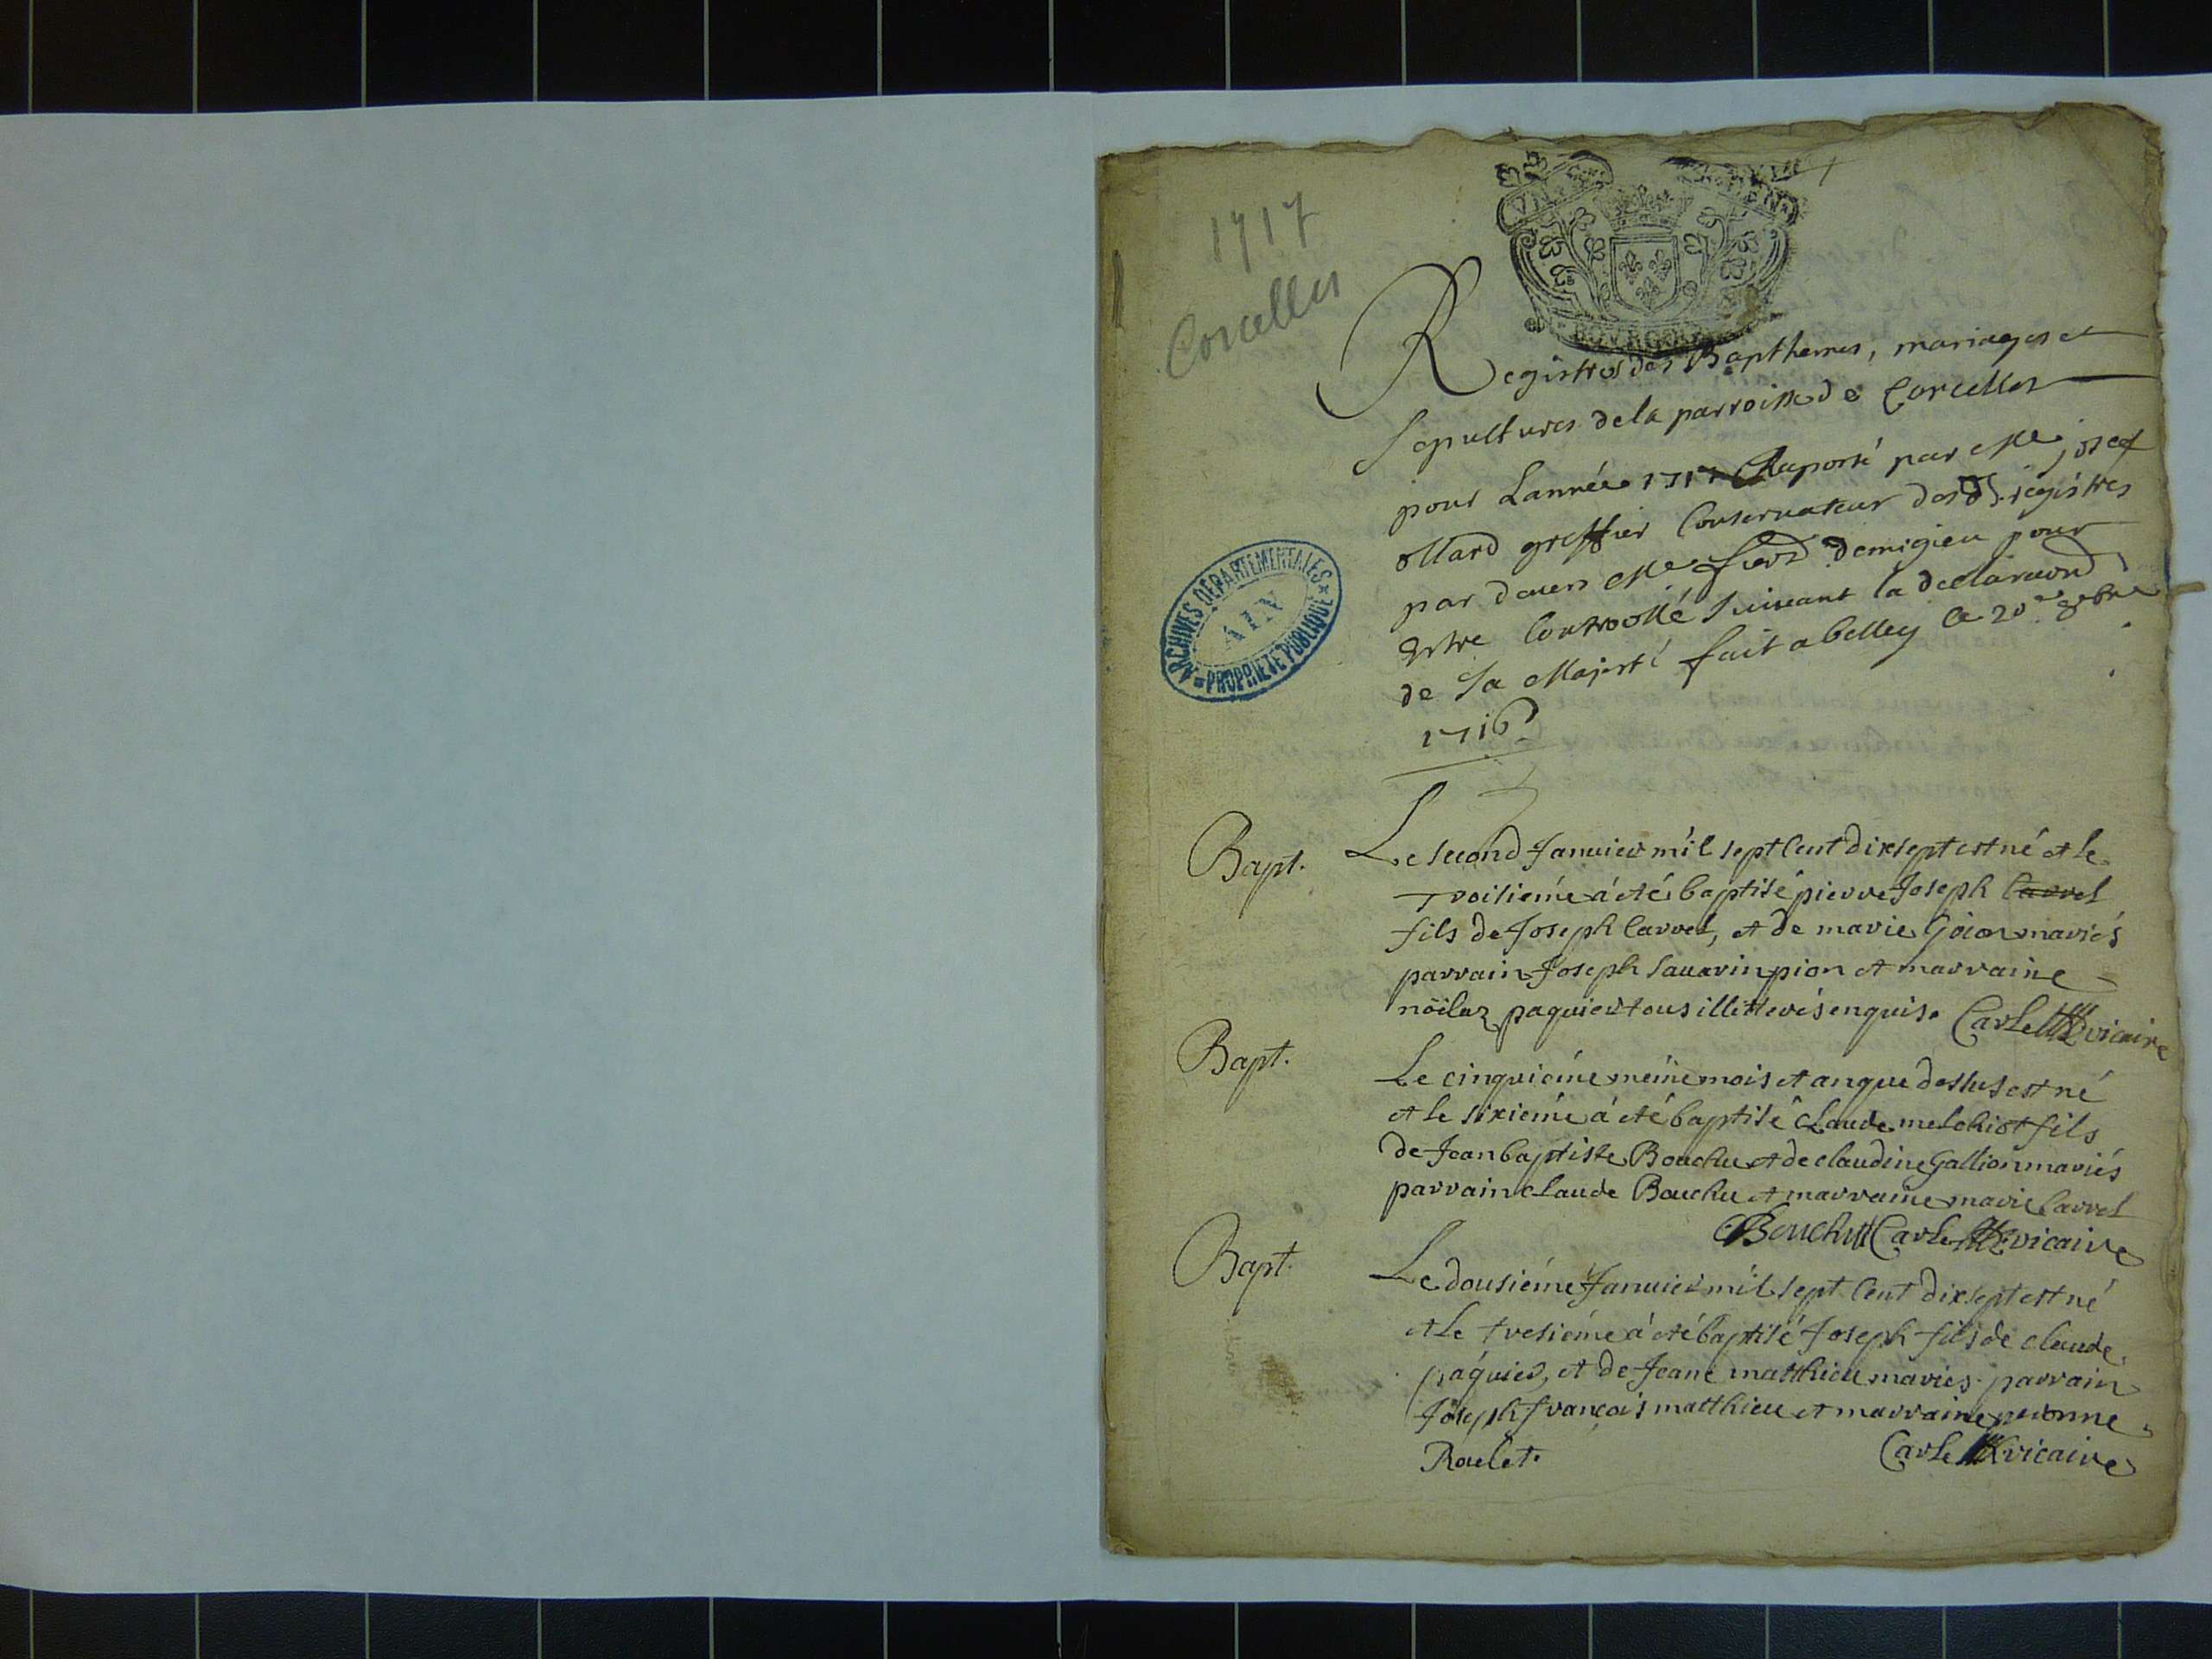 1717
Corcelles
BOURGOGNE
Registres des Bapthemes, mariages et
Sepultures de la parroisse de Corcelles
pour Lannée 1717 Raporté par Me josef
ollard greffier Conservateur desd. registres
par devers Me demigieu pour
estre Controollé Suiveant la declaraond
de Sa Majesté fait a belley le 20e 9bre
1716
ARCHIVES DÉPARTEMENTALES
AIN
PROPRIÉTÉ PUBLIQUE
Bapt.
Le second Januier mil sept Cent dix sept est né et le
troisiéme á eté baptisé pierre Joseph Carrel
fils de Joseph Carrel, et de marie Goion mariés
parrain Joseph Sauarin pion et marraine
nöilaz paquier tous illitterés enquis. Carle vicaire
Bapt.
Le cinquiéme méme mois et an que dessus est né
et le sixiéme á eté baptisé Claude melchiot fils
de Jean baptiste Bouchu et de claudine Gallion mariés
parrain claude Bouchu et marraine marie Carrel
Bouchu Carle vicaire
Bapt.
Le dousiéme Januier mil sept Cent dix sept est né
et le tresiéme á eté baptisé Joseph fils de claude
páquier, et de Jeane matthieu mariés parrain
Joseph françois matthieu et marraine peronne
Roulet. Carle vicaire